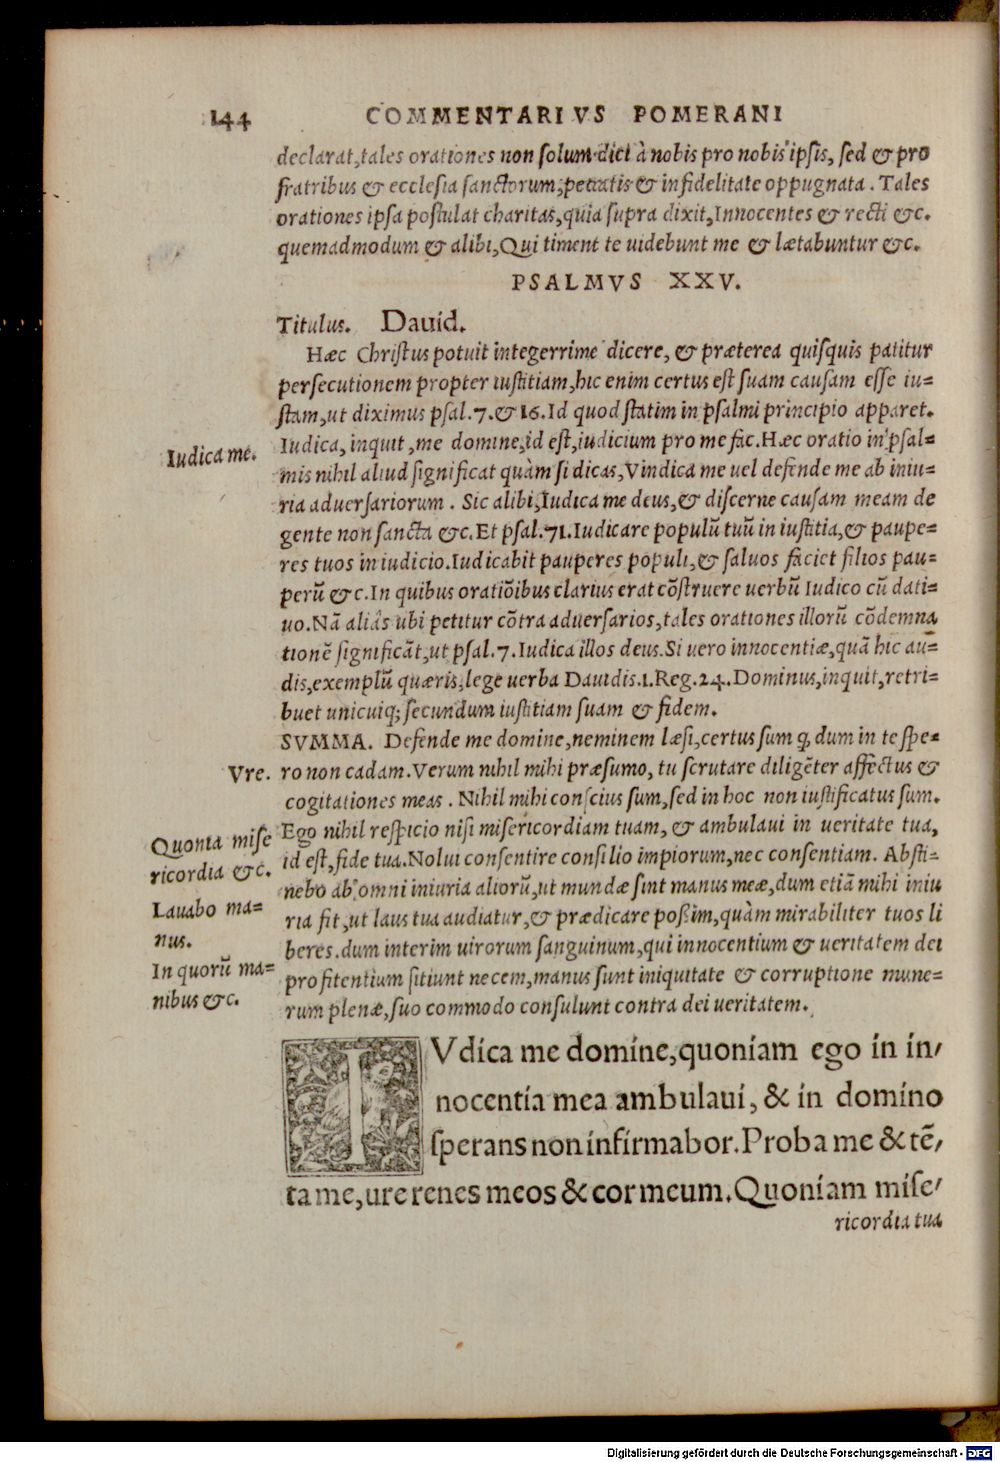 144 COMMENTARIVS POMERANI
declarat,tales orationes non solum dici à nobis pro nobis ipsis, sed & pro
fratribus & ecclesia sanctorum, peccatis & infidelitate oppugnata. Tales
orationes ipsa postulat charitas,quia supra dixit,Innocentes & recti &c.
quemadmodum & alibi,Qui timent te uidebunt me & lætabuntur &c.
PSALMVS XXV.
Titulus. Dauid.
Hæc Christus potuit integerrime dicere, & præterea quisquis patitur
persecutionem propter iustitiam,hic enim certus est suam causam esse iu=
stam,ut diximus psal.7.&16.Id quod statim in psalmi principio apparet.
Iudica me. Iudica, inquit, me domine,id est,iudicium pro me fac.Hæc oratio in psal=
mis nihil aliud significat quàm si dicas,Vindica me uel defende me ab iniu=
ria aduersariorum. Sic alibi,Iudica me deus,& discerne causam meam de
gente non sancta &c.Et psal.71.Iudicare populū tuū in iustitia,& paupe=
res tuos in iudicio.Iudicabit pauperes populi,& saluos faciet filios pau=
perū &c.In quibus oratiōibus clarius erat cōstruere uerbū Iudico cū dati=
uo.Nā aliâs ubi petitur cōtra aduersarios,tales orationes illorū cōdemna
tionē significāt,ut psal.7.Iudica illos deus.Si uero innocentiæ,quā hic au=
dis,exemplū quæris,lege uerba Dauidis.1.Reg.24.Dominus,inquit,retri=
buet unicuiq; secundum iustitiam suam & fidem.
SVMMA. Defende me domine,neminem læsi,certus sum q, dum in te spe=
Vre. ro non cadam.Verum nihil mihi præsumo, tu scrutare diligēter affectus &
cogitationes meas. Nihil mihi conscius sum,sed in hoc non iustificatus sum.
Quonia mise Ego nihil respicio nisi misericordiam tuam, & ambulaui in ueritate tua,
ricordia &c. id est,fide tua.Nolui consentire consilio impiorum,nec consentiam. Absti=
nebo ab omni iniuria aliorū,ut mundæ sint manus meæ,dum etiā mihi iniu
Lauabo ma= ria fit,ut laus tua audiatur,& prædicare poßim,quàm mirabiliter tuos li
nus. beres.dum interim uirorum sanguinum,qui innocentium & ueritatem dei
In quorū ma= profitentium sitiunt necem,manus sunt iniquitate & corruptione mune=
nibus &c. rum plenæ,suo commodo consulunt contra dei ueritatem.
IVdica me domine,quoniam ego in in/
nocentia mea ambulaui, & in domino
sperans non infirmabor.Proba me & tē/
ta me,ure renes meos & cor meum.Quoniam mise/
ricordia tua
Digitalisierung gefördert durch die Deutsche Forschungsgemeinschaft - DFG